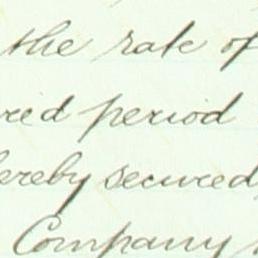 the rate of
red period
hereby secured
Company